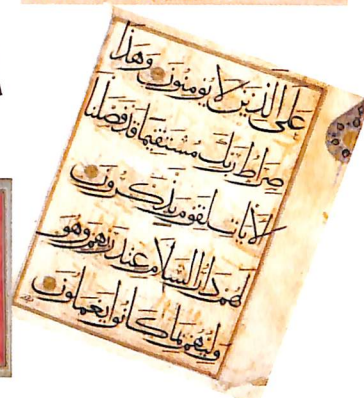 على الذين لا يؤمنون وهذا
صراط ربك مستقيما قد فصلنا
الآيات لقوم يذكرون
لهم دار السلام عند ربهم وهو
وليهم بما كانوا يعملون